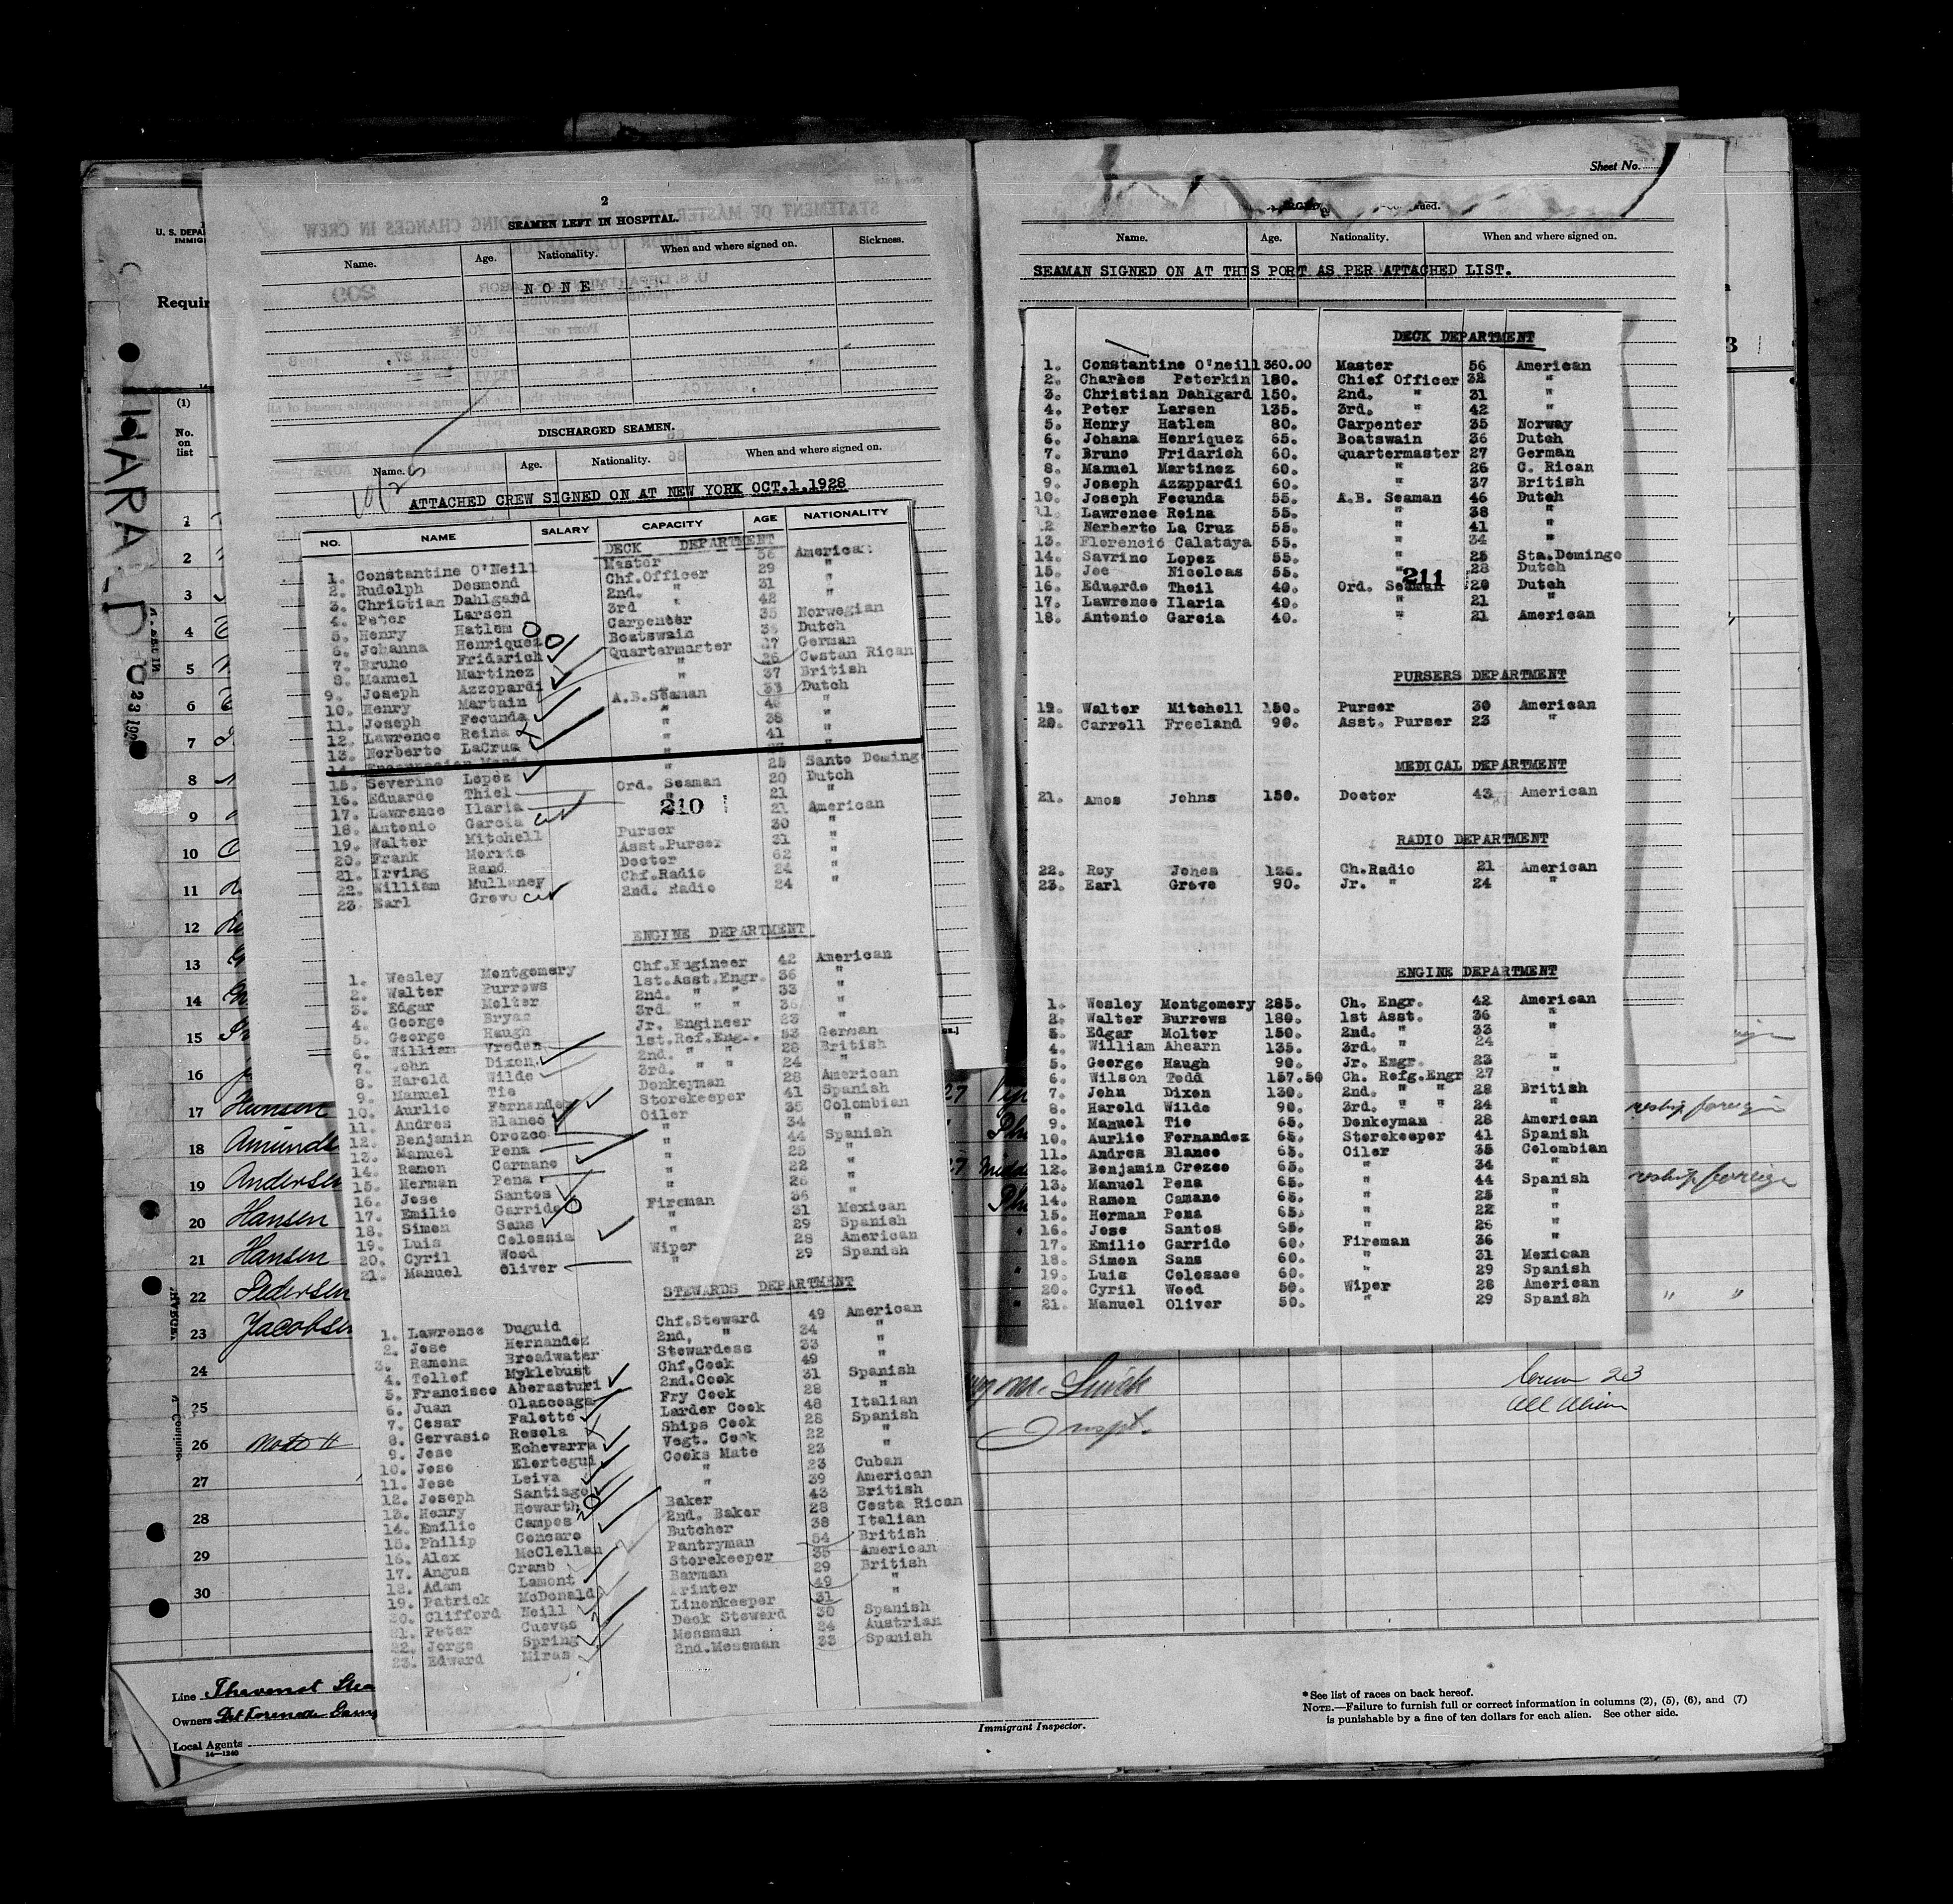 2
SEAMEN LEFT IN HOSPITAL.
Name. Age. Nationality. When and where signed on. Sickness.
NONE
DISCHARGED SEAMEN.
Name. Age. Nationality. When and where signed on.
ATTACHED CREW SIGNED ON AT NEW YORK OCT.1.1928
NO. NAME SALARY CAPACITY AGE NATIONALITY
DECK DEPARTMENT
1. Constantine O'Neill Master 56 American
2. Rudolph Desmond Chf.Officer 29 "
3. Christian Dahlgard 2nd. " 31 "
4. Peter Larsen 3rd " 42 "
5. Henry Hatlem Carpenter 35 Norwegian
6. Johanna Henriquez Boatswain 36 Dutch
7. Bruno Fridarich Quartermaster 27 German
8. Manuel Martinez " 26 Costan Rican
9. Joseph Azzopardi " 37 British
10. Henry Martain A.B.Seaman 33 Dutch
11. Joseph Fecunda " 46 "
12. Lawrence Reina " 38 "
13. Norberto LaCruz " 41 "
14. Encarnacion
15. Severino Lopez " 25 Santo Domingo
16. Eduardo Thiel Ord. Seaman 20 Dutch
17. Lawrence Ilaria " 21 "
18. Antonio Garcia 21 American
210
19. Walter Mitchell Purser 30 "
20. Frank Morris Asst.Purser 31 "
21. Irving Rand Doctor 62 "
22. William Mullaney Chf.Radio 24 "
23. Earl Grove 2nd. Radio 24 "
ENGINE DEPARTMENT
1. Wesley Montgomery Chf.Engineer 42 American
2. Walter Burrows 1st.Asst.Engr. 36 "
3. Edgar Molter 2nd. " " 33 "
4. George Bryan 3rd. " " 36 "
5. George Haugh Jr. Engineer 23 "
6. William Vreden 1st.Ref.Engr. 53 German
7. John Dixon 2nd. " " 28 British
8. Harold Wilde 3rd. " " 24 "
9. Manuel Tie Donkeyman 28 American
10. Aurlio Fernandez Storekeeper 41 Spanish
11. Andres Blanco Oiler 35 Colombian
12. Benjamin Orozco " 34 "
13. Manuel Pena " 44 Spanish
14. Ramon Carmano " 25 "
15. Herman Pena " 22 "
16. Jose Santos " 26 "
17. Emilio Garrido Fireman 36 "
18. Simon Sans " 31 Mexican
19. Luis Colossia " 29 Spanish
20. Cyril Wood Wiper 28 American
21. Manuel Oliver " 29 Spanish
STEWARDS DEPARTMENT
1. Lawrence Duguid Chf.Steward 49 American
2. Jose Hernandez 2nd. " 34 "
3. Ramona Broadwater Stewardess 33 "
4. Tollef Myklebust Chf.Cook 49 "
5. Francisco Aberasturi 2nd.Cook 31 Spanish
6. Juan Olascoaga Fry Cook 28 "
7. Cesar Falette Larder Cook 48 Italian
8. Gervasio Rosola Ships Cook 28 Spanish
9. Jose Echevarra Vegt. Cook 22 "
10. Jose Elortegui Cooks Mate 23 "
11. Jose Leiva " 23 Cuban
12. Joseph Santiago " 39 American
13. Henry Howarth Baker 43 British
14. Emilio Campos 2nd. Baker 28 Costa Rican
15. Philip Concaro Butcher 38 Italian
16. Alex McClellan Pantryman 54 British
17. Angus Cramb Storekeeper 35 American
18. Adam Lamont Barman 29 British
19. Patrick McDonald Printer 49 "
20. Clifford Neill Linenkeeper 31 "
21. Peter Cuevas Deck Steward 30 Spanish
22. Jorge Spring Messman 24 Austrian
23. Edward Miras 2nd.Messman 33 Spanish
Sheet No.
Name. Age. Nationality. When and where signed on.
SEAMAN SIGNED ON AT THIS PORT AS PER ATTACHED LIST.
DECK DEPARTMENT
1. Constantine O'neill 360.00 Master 56 American
2. Charles Peterkin 180. Chief Officer 32 "
3. Christian Dahlgard 150. 2nd. " 31 "
4. Peter Larsen 135. 3rd. " 42 "
5. Henry Hatlem 80. Carpenter 35 Norway
6. Johana Henriquez 65. Boatswain 36 Dutch
7. Bruno Fridarich 60. Quartermaster 27 German
8. Manuel Martinez 60. " 26 C. Rican
9. Joseph Azzppardi 60. " 37 British
10. Joseph Fecunda 55. A.B. Seaman 46 Dutch
11. Lawrence Reina 55. " 38 "
12 Norberto La Cruz 55. " 41 "
13. Florencio Calataya 55. " 34 "
14. Savrino Lopez 55. " 25 Sta.Domingo
15. Joe Nicoloas 55. " 28 Dutch
211
16. Eduardo Theil 40. Ord. Seaman 20 Dutch
17. Lawrence Ilaria 40. " 21 "
18. Antonio Garcia 40. " 21 American
PURSERS DEPARTMENT
19. Walter Mitchell 150. Purser 30 American
20. Carroll Freeland 90. Asst. Purser 23 "
MEDICAL DEPARTMENT
21. Amos Johns 150. Doctor 43 American
RADIO DEPARTMENT
22. Roy Jones 125. Ch.Radio 21 American
23. Earl Grove 90. Jr. " 24 "
ENGINE DEPARTMENT
1. Wesley Montgomery 285. Ch. Engr. 42 American
2. Walter Burrows 180. 1st Asst. 36 "
3. Edgar Molter 150. 2nd. " 33 "
4. William Ahearn 135. 3rd. " 24
5. George Haugh 90. Jr. Engr. 23 "
6. Wilson Todd 157.50 Ch. Refg.Engr 27 "
7. John Dixon 130. 2nd. " " 28 British
8. Harold Wilde 90. 3rd. " " 24 "
9. Manuel Tie 65. Donkeyman 28 American
10. Aurlie Fernandez 65. Storekeeper 41 Spanish
11. Andres Blanco 65. Oiler 35 Colombian
12. Benjamin Crozco 65. " 34 "
13. Manuel Pena 65. " 44 Spanish
14. Ramon Camano 65. " 25 "
15. Herman Pena 65. " 22 "
16. Jose Santos 65. " 26 "
17. Emilio Garrido 60. Fireman 36 "
18. Simon Sans 60. " 31 Mexican
19. Luis Colosace 60. " 29 Spanish
20. Cyril Wood 50. Wiper 28 American
21. Manuel Oliver 50. " 29 Spanish
U. S. DEPAR
IMMIG
Requir
(1)
No.
on
list
HARALD
1
2
3
4
5
6
7
8
9
10
11
12
13
14
15
16
17 Hansen
18 Amunds
19 Andersen
20 Hansen
21 Hansen
22 Pedersen
23 Jacobsen
24
25
26
27
28
29
30
reship foreign
reship foreign
Crew 23
All Alien
Inspt.
Line Thevenot Stea
Owners
Local Agents
14—1240
Immigrant Inspector.
*See list of races on back hereof.
NOTE.—Failure to furnish full or correct information in columns (2), (5), (6), and (7)
is punishable by a fine of ten dollars for each alien. See other side.